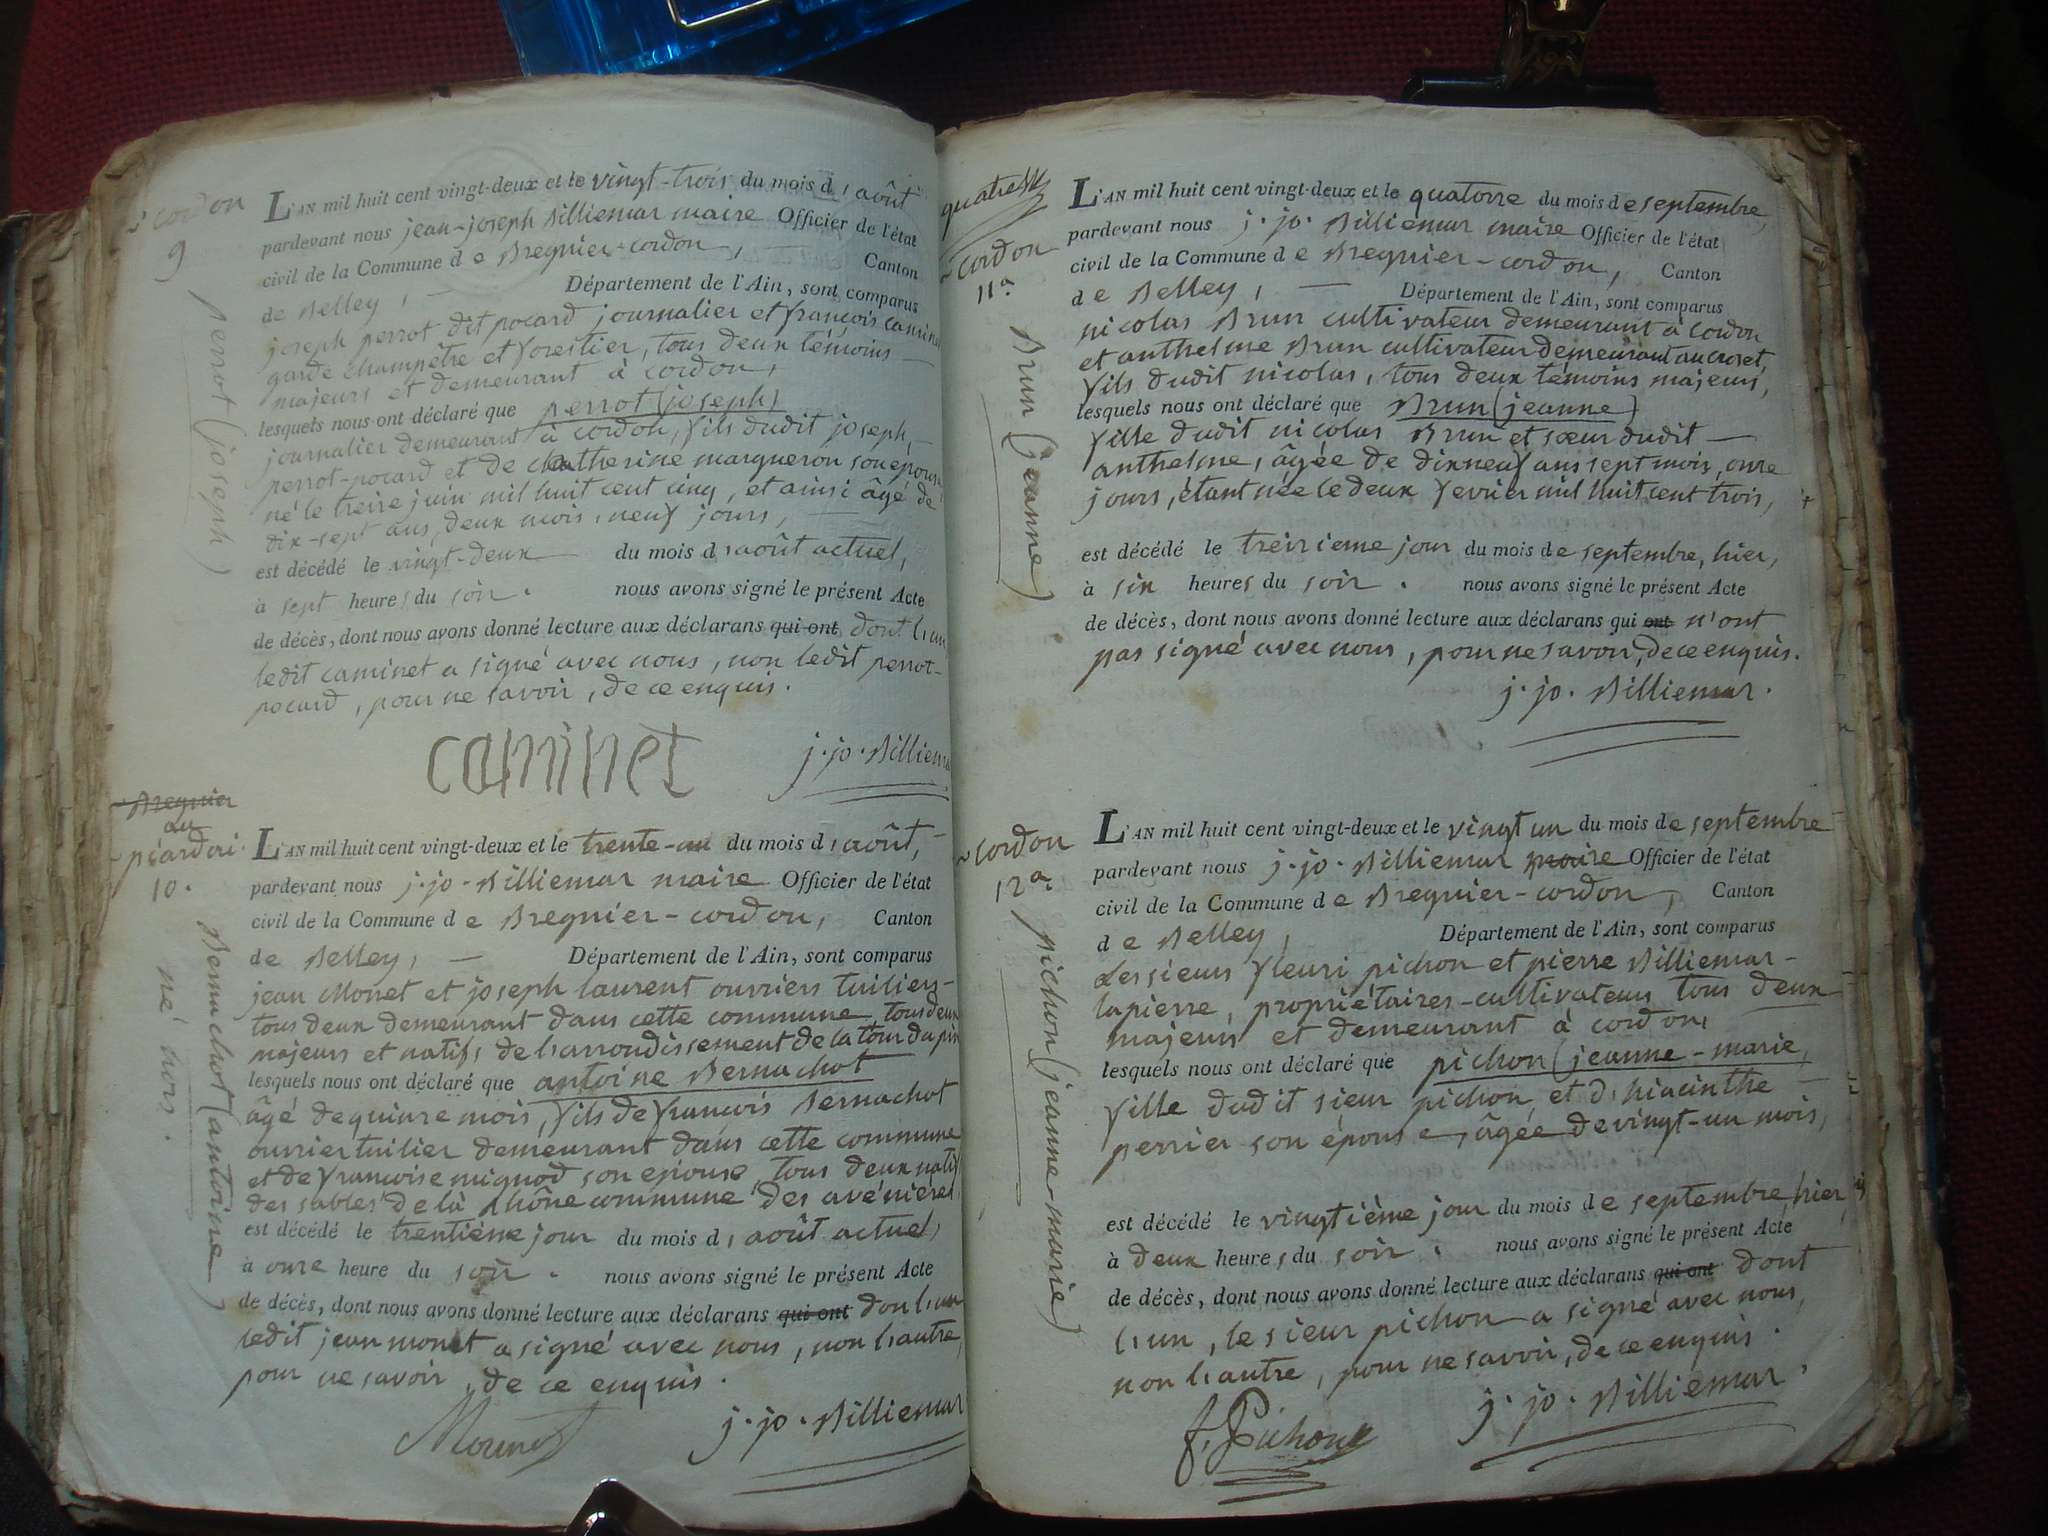 cordon
9
perrot (joseph)
L'AN mil huit cent vingt-deux et le vingt-trois du mois d'août
pardevant nous jean-joseph Billiemar maire Officier de l'état
civil de la Commune de Bregnier-cordon, Canton
de Belley, — Département de l'Ain, sont comparus
joseph perrot dit pocard journalier et françois caminet
garde champêtre et forestier, tous deux témoins —
majeurs et demeurant à cordon,
lesquels nous ont déclaré que perrot (joseph)
journalier demeurant à cordon, fils dudit joseph
perrot-pocard et de catherine margueron son épouse,
né le treize juin mil huit cent cinq, et ainsi âgé de
dix-sept ans, deux mois, neuf jours,
est décédé le vingt-deux du mois d'août actuel,
à sept heures du soir. nous avons signé le présent Acte
de décès, dont nous avons donné lecture aux déclarans qui ont dont l'un
ledit caminet a signé avec nous, non ledit perrot-
pocard, pour ne savoir, de ce enquis.
caminet j. jo. Billiemar
Bregnier
au
piardori
10.
Bernachot (antoine)
né hors.
L'AN mil huit cent vingt-deux et le trente-un du mois d'août,
pardevant nous j. jo. Billiemar maire Officier de l'état
civil de la Commune de Bregnier-cordon, Canton
de Belley, — Département de l'Ain, sont comparus
jean Monet et joseph laurent ouvriers tuiliers-
tous deux demeurant dans cette commune, tous deux
majeurs et natifs de l'arrondissement de la tour du pin
lesquels nous ont déclaré que antoine Bernachot
âgé de quinze mois, fils de françois Bernachot
ouvrier tuilier demeurant dans cette commune
et de françoise mignod son épouse, tous deux natifs
des sables de là Rhône commune des avénières
est décédé le trentième jour du mois d'août actuel,
à onze heure du soir. nous avons signé le présent Acte
de décès, dont nous avons donné lecture aux déclarans qui ont don l'un
ledit jean monet a signé avec nous, non l'autre,
pour ne savoir, de ce enquis.
j. jo. Billiemar
quatre
cordon
11a.
Brun (jeanne)
L'AN mil huit cent vingt-deux et le quatorze du mois de septembre,
pardevant nous j. jo. Billiemar maire Officier de l'état
civil de la Commune de Bregnier-cordon, Canton
de Belley, — Département de l'Ain, sont comparus
nicolas Brun cultivateur demeurant à cordon
et anthelme Brun cultivateur demeurant au crozet,
fils dudit nicolas, tous deux témoins majeurs,
lesquels nous ont déclaré que Brun (jeanne)
fille dudit nicolas Brun et sœur dudit —
anthelme, âgée de dixneuf ans sept mois, onze
jours, étant née le deux fevrier mil huit cent trois,
est décédé le treizieme jour du mois de septembre, hier,
à six heures du soir. nous avons signé le présent Acte
de décès, dont nous avons donné lecture aux déclarans qui ont n'ont
pas signé avec nous, pour ne savoir, de ce enquis.
j. jo. Billiemar.
cordon
12a.
pichon (jeanne-marie)
L'AN mil huit cent vingt-deux et le vingt un du mois de septembre
pardevant nous j. jo. Billiemar maire Officier de l'état
civil de la Commune de Bregnier-cordon, Canton
de Belley, Département de l'Ain, sont comparus
Les sieurs fleuri pichon et pierre Billiemar-
lapierre, propriétaires-cultivateurs tous deux
majeurs et demeurant à cordon,
lesquels nous ont déclaré que pichon (jeanne-marie,
fille dudit sieur pichon et d'hiacinthe —
perrier son épouse, âgée de vingt-un mois,
est décédé le vingtième jour du mois de septembre, hier,
à deux heures du soir. nous avons signé le présent Acte
de décès, dont nous avons donné lecture aux déclarans qui ont dont
l'un, le sieur pichon a signé avec nous,
non l'autre, pour ne savoir, de ce enquis.
f. Pichon j. jo. Billiemar.